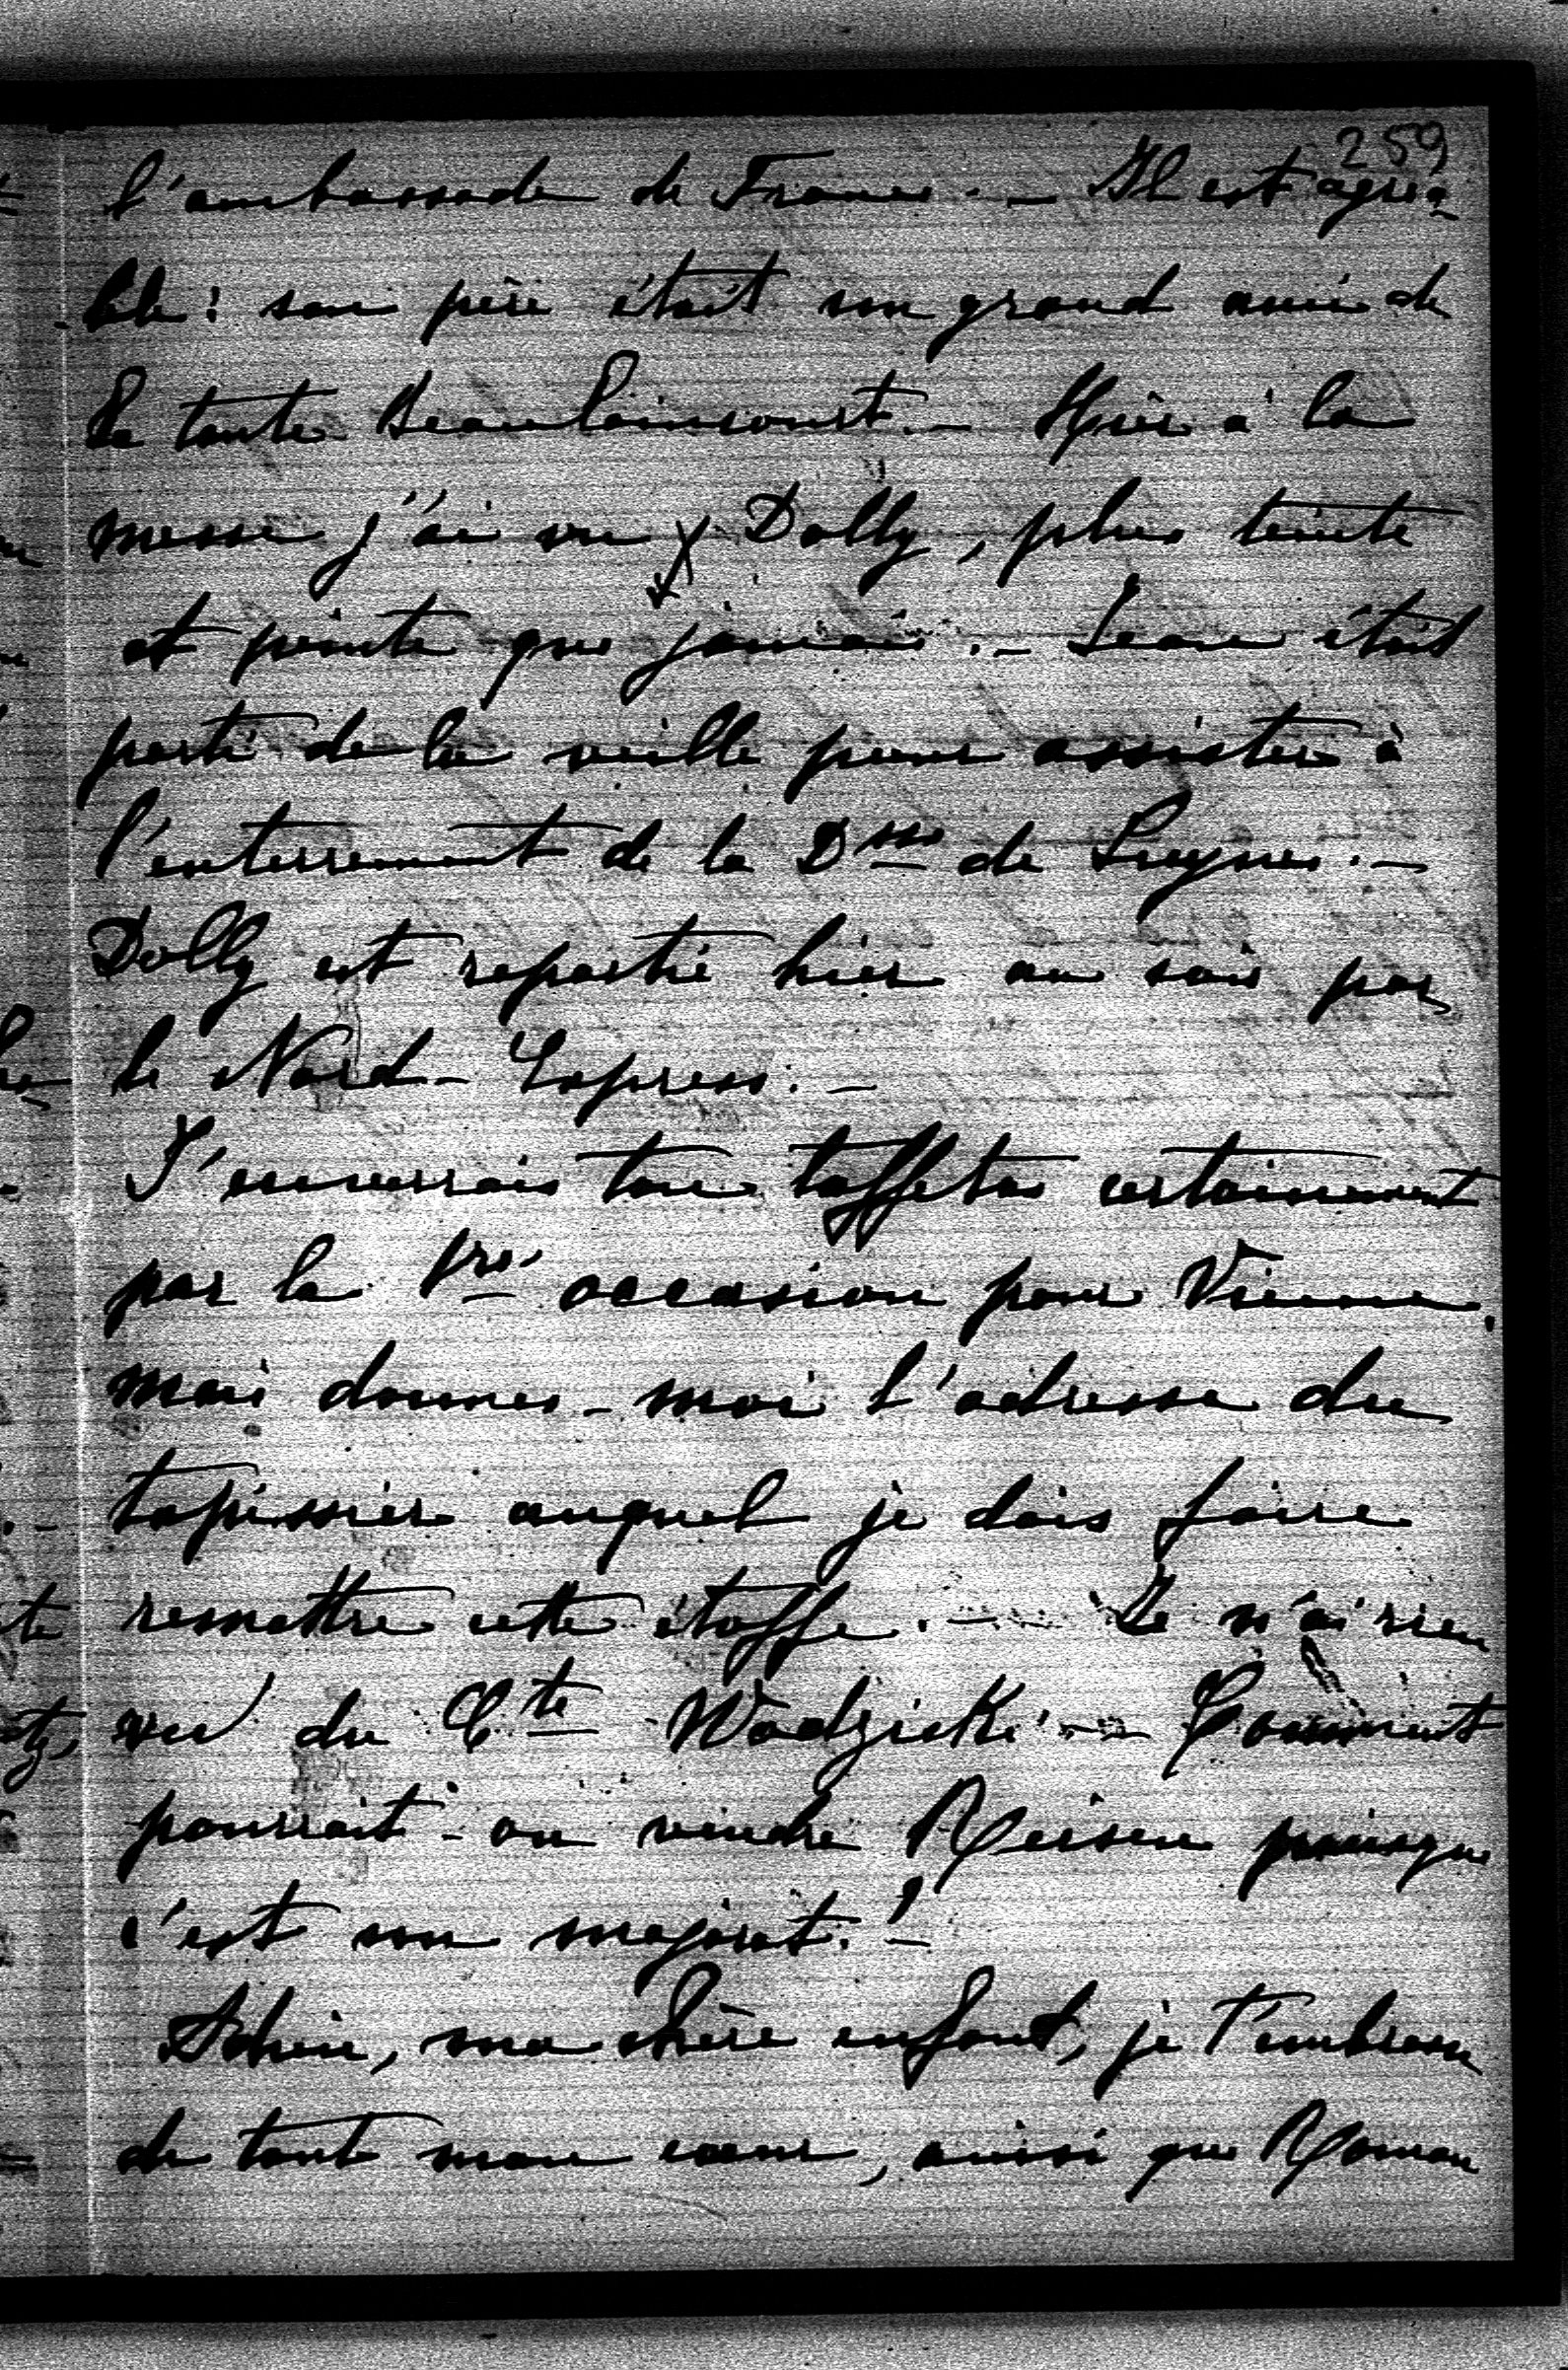 259
l'ambassade de France. — Il est agréa-
-ble : son père était un grand ami de
la tante Beaulaincourt. — Hier à la
messe j'ai vu Dolly, plus teinte
et peinte que jamais. — était
parti de la veille pour assister à
l'enterrement de la Dsse de Luynes. —
Dolly est repartie hier au soir par
le Nord-Express. —
J'enverrais ton taffetas certainement
par la 1re occasion pour Vienne,
mais donnes-moi l'adresse du
tapissier auquel je dois faire
remettre cette étoffe. — Je n'ai rien
vu du Cte Wodzicki. — Comment
pourrait-on vendre puisque
c'est un majorat! —
Adieu, ma chère enfant, je t'embrasse
de tout mon cœur, ainsi que Roman